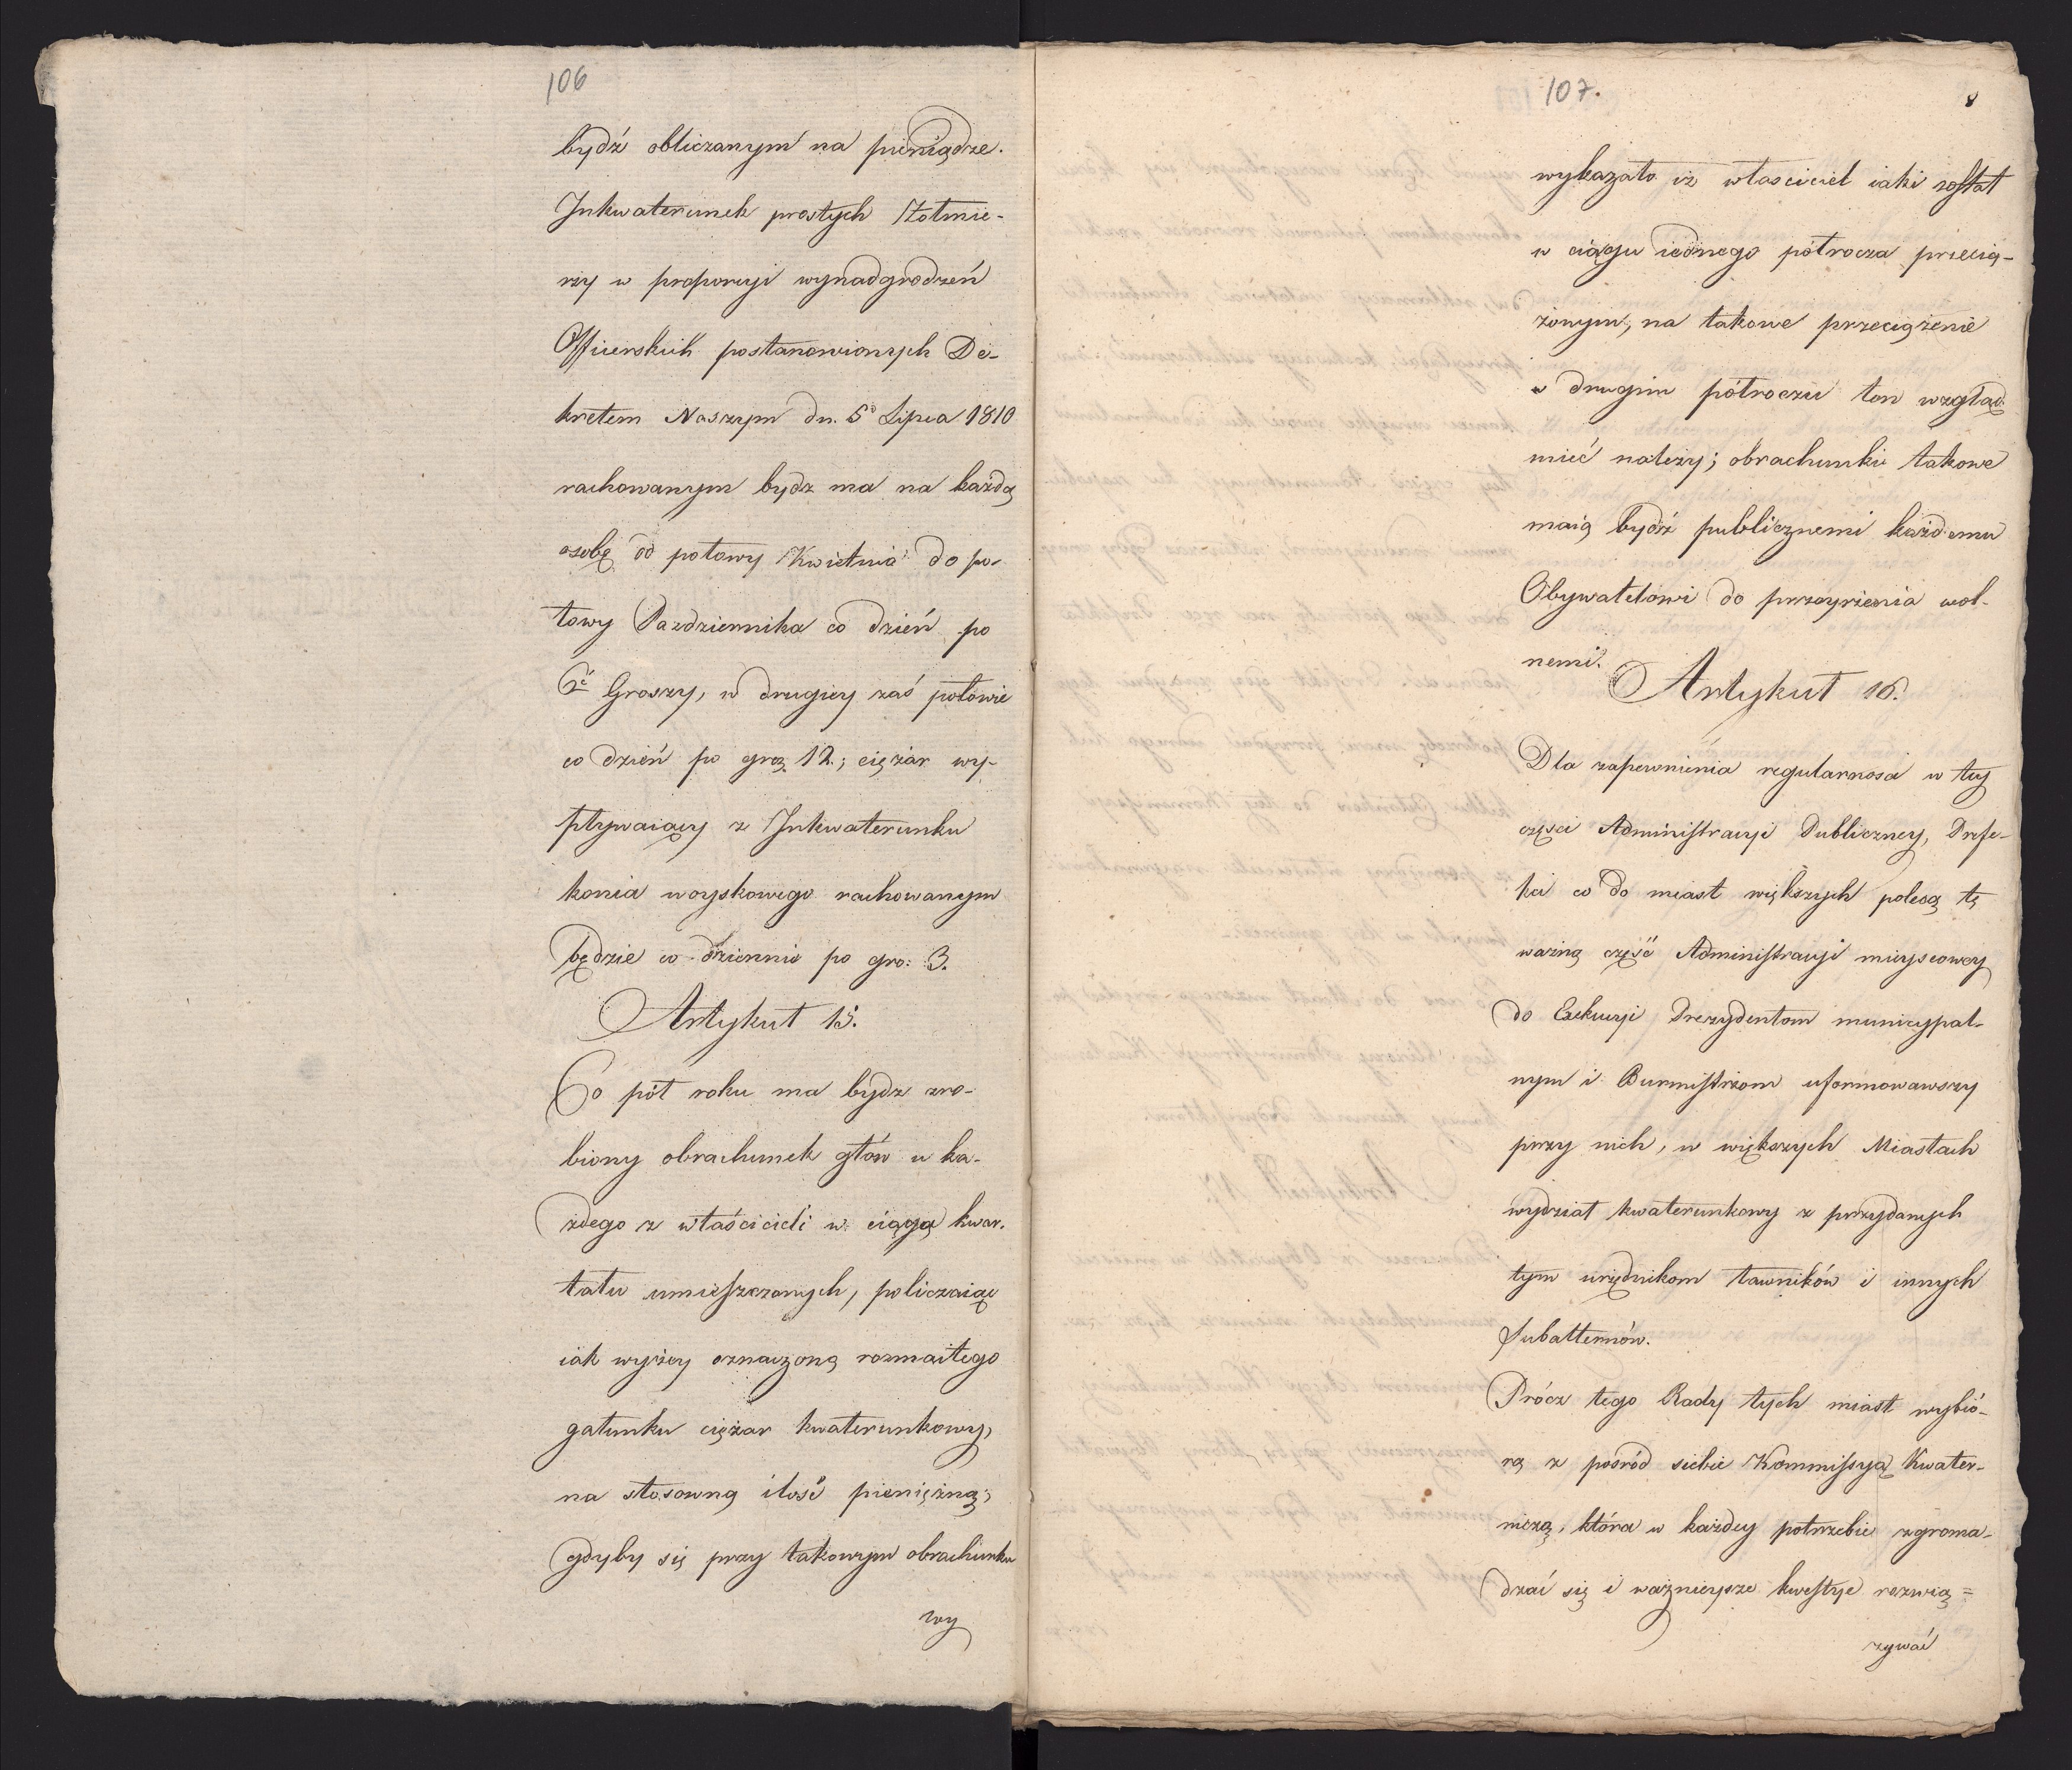 106
bydź obliczanym na pieniądze.
Inkwaterunek prostych Żołnie-
rzy w proporcyi wynadgrodzeń
Officerskich postanowionych De-
kretem Naszym dn. 5º Lipca 1810
rachowanym bydz ma na każdą
osobę od połowy Kwietnia do po-
łowy Pazdziernika co dzień po
Groszy, w drugiey zaś połowie
co dzień po grosz. 12.; ciężar wy-
pływaiący z Inkwaterunku
konia woyskowego rachowanym
będzie co dziennie po gro: 3.
Artykuł 15.
Co pół roku ma bydz zro-
biony obrachunek głów u ka-
żdego z właścicieli w ciągą kwar-
tału umieszczonych, policzaiąc
iak wyżey oznaczoną rozmaitego
gatunku ciężar kwaterunkowy,
na stosowną ilość pieniężną;
gdyby się przy takowym obrachunku
wy
107.
8
wykazało iż własciciel iaki został
w ciągu iednego półrocza przecią-
żonym, na takowe przeciążenie
w drugim półroczu ten wzgląd
mieć należy; obrachunki takowe
maią bydź publicznemi każdemu
Obywatelowi do przeyrzenia wol-
nemi.
Artykuł 16.
Dla zapewnienia regularnosci w tey
częsci Administracyi Publiczney, Prefe-
kci co do miast większych polecą tę
ważną część Administracyi mieyscowey
do Exekucyi Prezydentom municypal-
nym i Burmistrzom uformowawszy
przy nich, w większych Miastach
wydział kwaterunkowy z przydanych
tym urzędnikom ławników i innych
Subalternów.
Prócz tego Rady tych miast wybió-
rą z pośród siebie Kommissyą Kwater-
niczą, która w każdey potrzebie zgroma-
dzać się i ważnieysze kwestye rozwią=
zywać